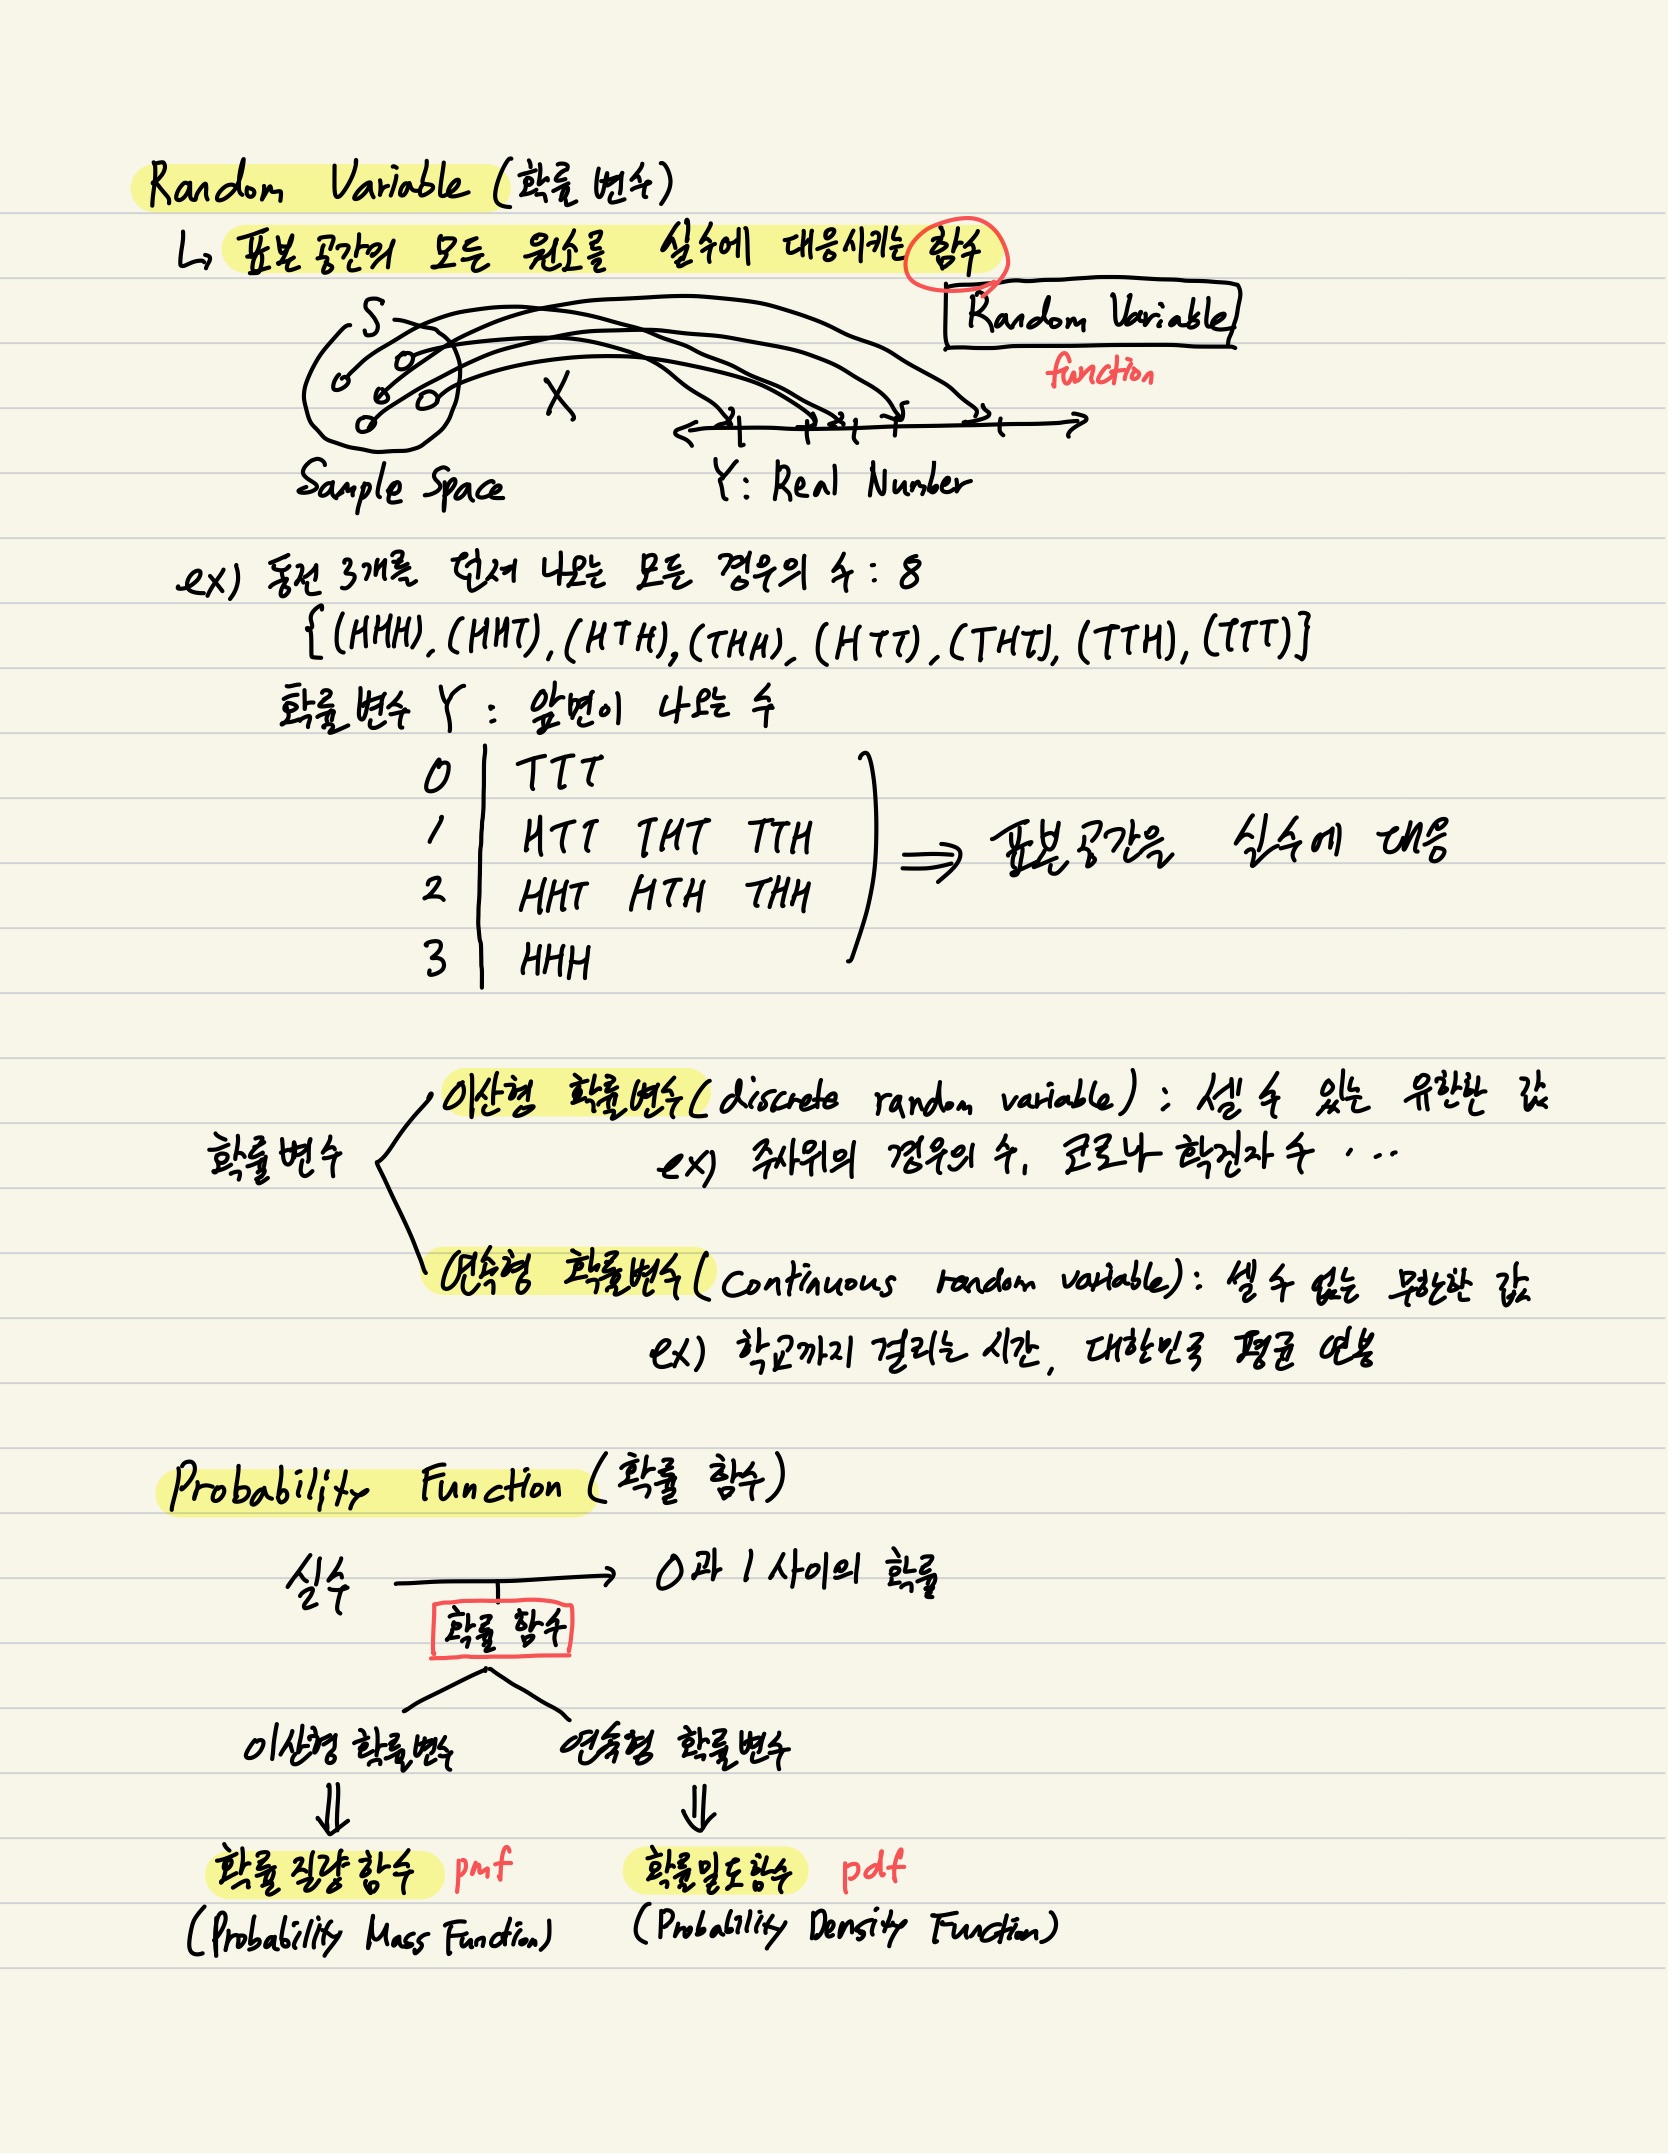 Random Variable (확률 변수)
↳ 표본 공간의 모든 원소를 실수에 대응시키는 함수
S
Random Variable
function
X
Sample Space
Y: Real Number
ex) 동전 3개를 던져 나오는 모든 경우의 수: 8
{(HHH), (HHT), (HTH), (THH), (HTT), (THT), (TTH), (TTT)}
확률 변수 Y : 앞면이 나오는 수
0 TTT
1 HTT THT TTH
2 HHT HTH THH
3 HHH
⇒ 표본공간을 실수에 대응
이산형 확률변수(discrete random variable) : 셀 수 있는 유한한 값
확률변수
ex) 주사위의 경우의 수, 코로나 확진자 수 ...
연속형 확률변수(continuous random variable): 셀 수 없는 무한한 값
ex) 학교까지 걸리는 시간, 대한민국 평균 연봉
Probability Function (확률 함수)
실수 → 0과 1 사이의 확률
확률 함수
이산형 확률변수 연속형 확률변수
⇓ ⇓
확률질량함수 pmf 확률밀도함수 pdf
(Probability Mass Function) (Probability Density Function)